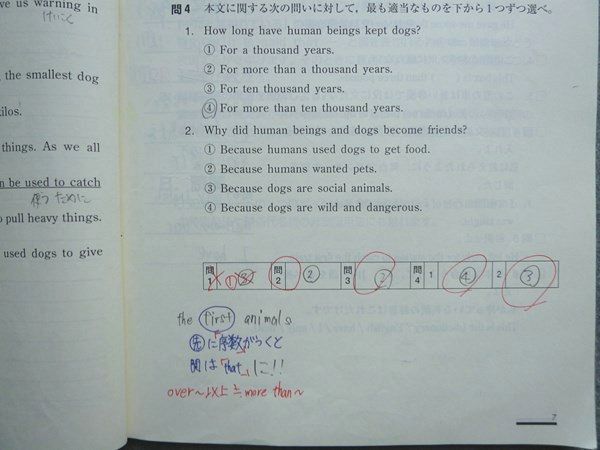 ve us warning in
けいこく
, the smallest dog
kilos.
things. As we all
n be used to catch
使う ために
o pull heavy things.
used dogs to give
問4 本文に関する次の問いに対して，最も適当なものを下から1つずつ選べ。
1. How long have human beings kept dogs?
① For a thousand years.
② For more than a thousand years.
③ For ten thousand years.
④ For more than ten thousand years.
2. Why did human beings and dogs become friends?
① Because humans used dogs to get food.
② Because humans wanted pets.
③ Because dogs are social animals.
④ Because dogs are wild and dangerous.
問1 ① ③ 問2 ② 問3 ② 問4 1 ④ 2 ③
the first animals
先に「序数」がつくと
関は「that」に!!
over~以上≒more than~
7